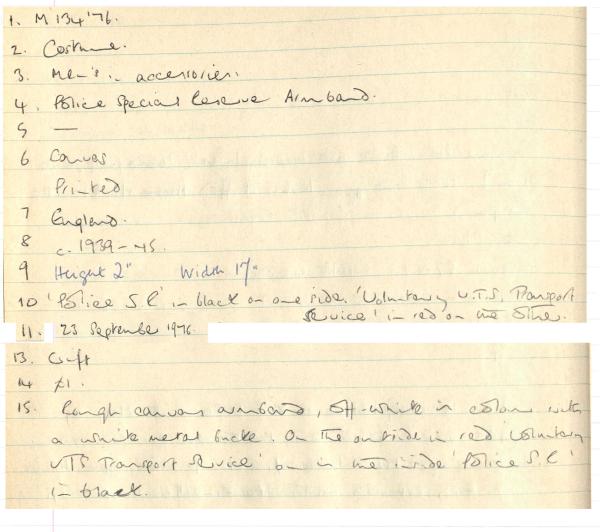 1. M 134 '76.
2. Costume.
3. Men's :- accessories.
4. Police Special Reserve Armband.
5 —
6 Canvas
Printed
7 England.
8 c. 1939-45.
9 Height 2" Width 17"
10 'Police S R' in black on one side. 'Voluntary V.T.S. Transport
Service' in red on the other.
11. 23 September 1976.
13. Gift
14 £1.
15. Rough canvas armband, off-white in colour with
a white metal buckle. On the outside in red 'Voluntary
VTS Transport Service' on in the inside 'Police S.R'
in black.